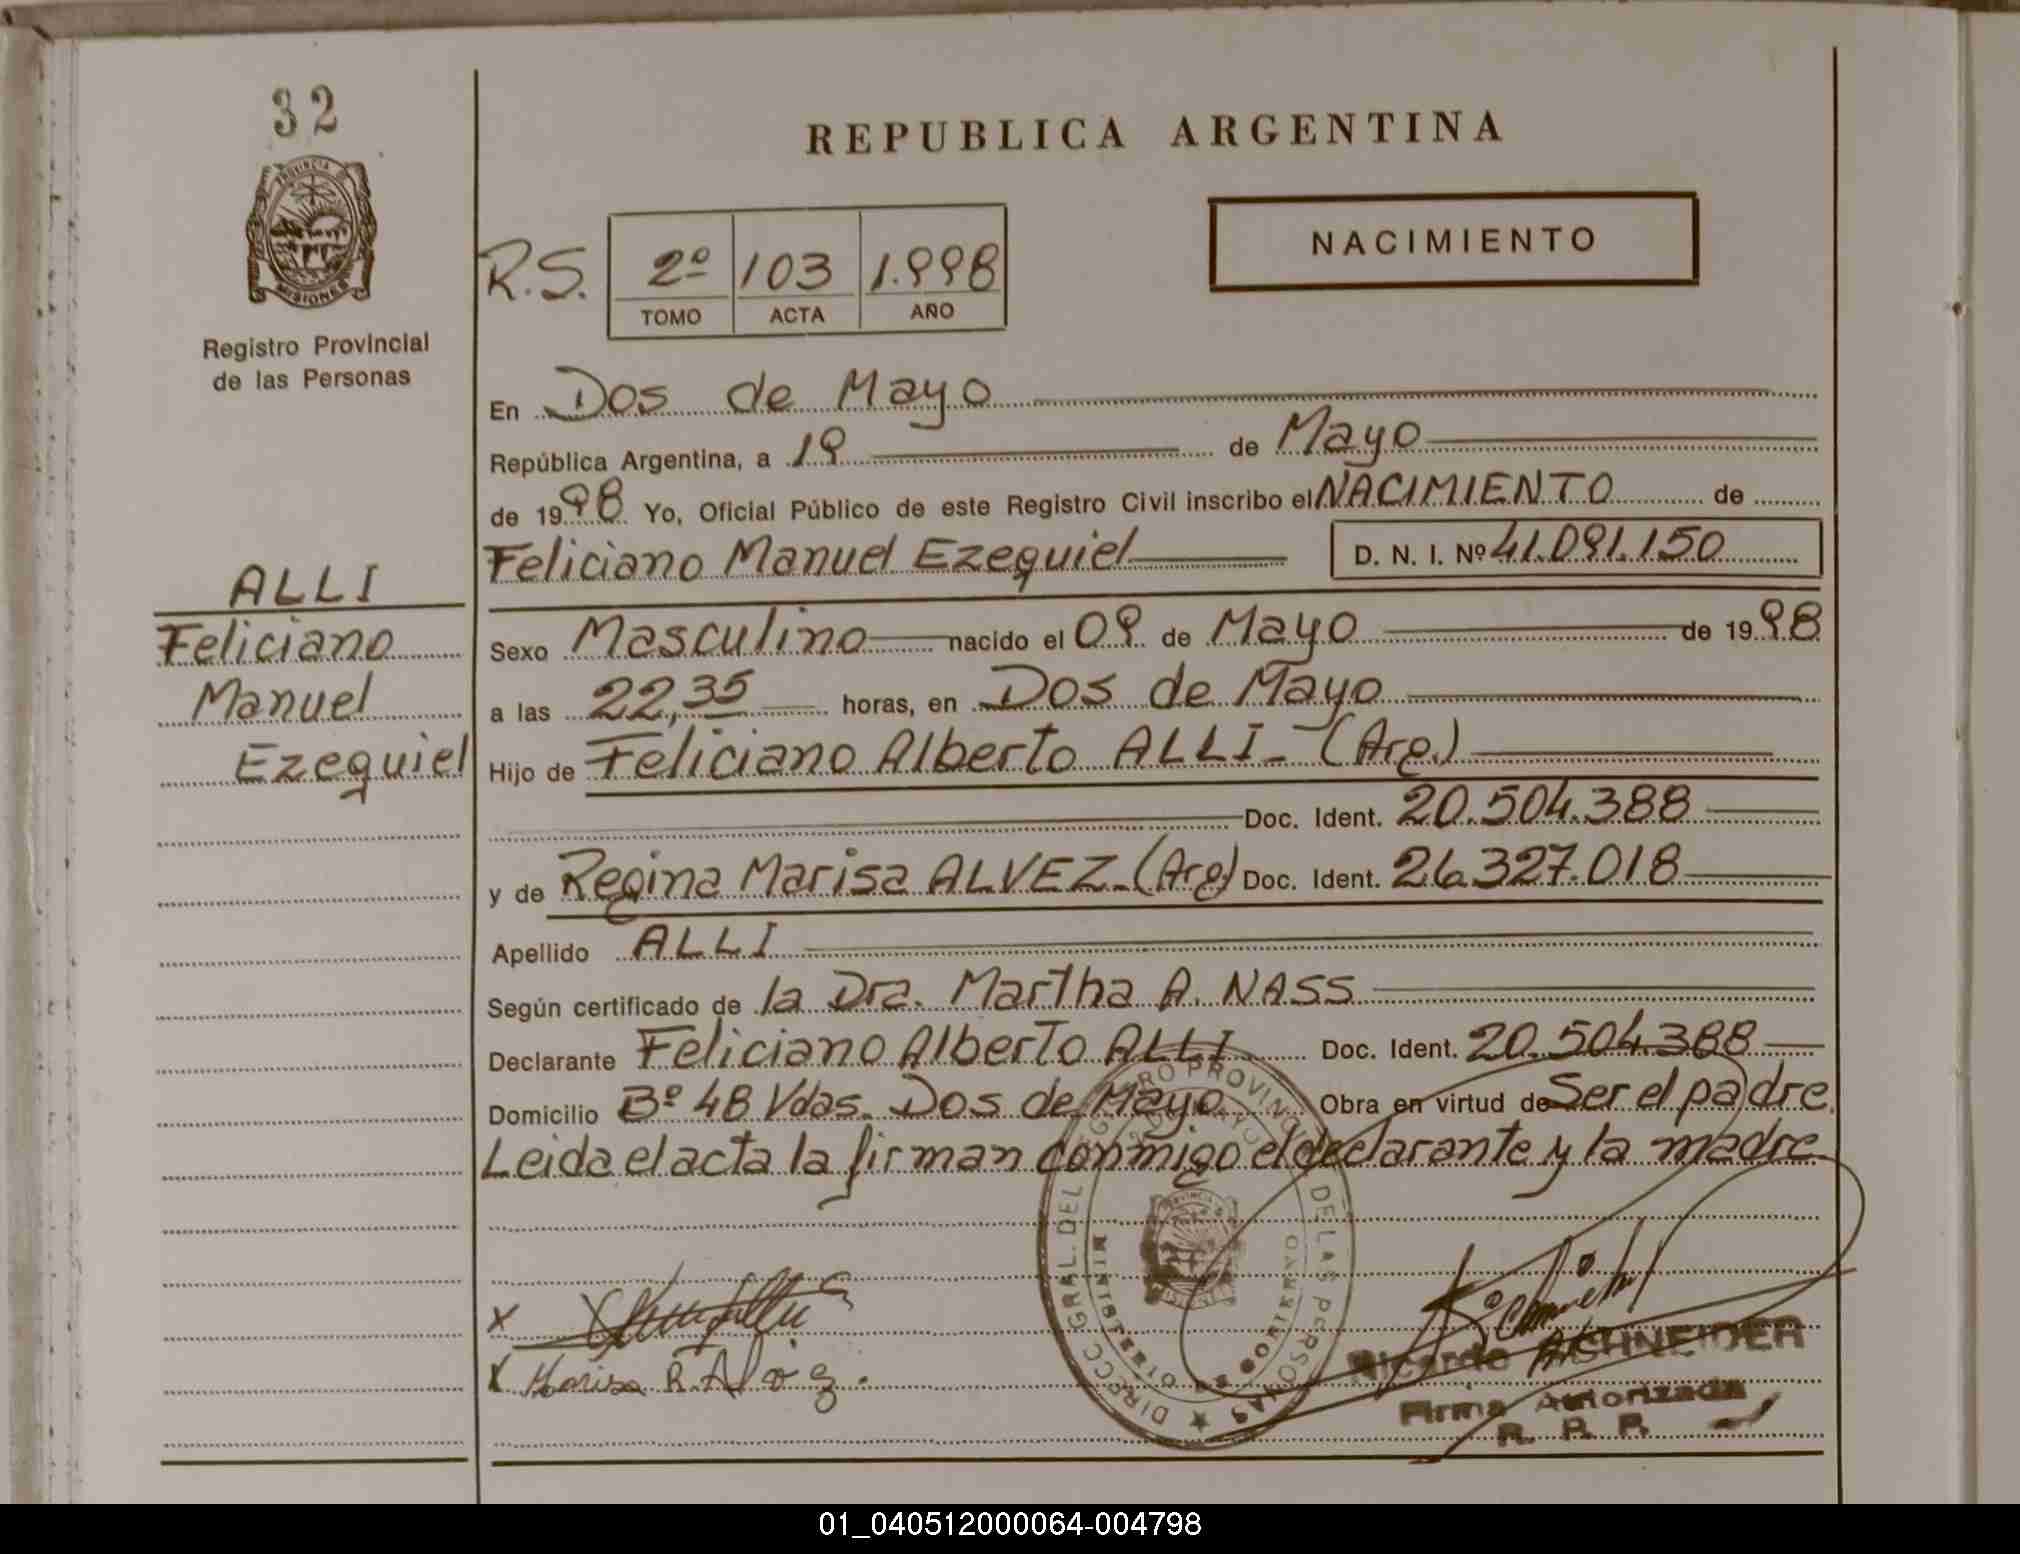 32
PROVINCIA DE
MISIONES
Registro Provincial
de las Personas
ALLI
Feliciano
Manuel
Ezequiel
REPUBLICA ARGENTINA
NACIMIENTO
R.S. 2º 103 1.998
TOMO ACTA AÑO
En Dos de Mayo
República Argentina, a 19 de Mayo
de 1998 Yo, Oficial Público de este Registro Civil inscribo el NACIMIENTO de
Feliciano Manuel Ezequiel D. N. I. Nº 41.091.150
Sexo Masculino nacido el 09 de Mayo de 1998
a las 22,35 horas, en Dos de Mayo
Hijo de Feliciano Alberto ALLI - (Arg.)
Doc. Ident. 20.504.388
y de Regina Marisa ALVEZ - (Arg) Doc. Ident. 26.327.018
Apellido ALLI
Según certificado de la Dra. Martha A. NASS
Declarante Feliciano Alberto ALLI Doc. Ident. 20.504.388
Domicilio Bº 48 Vdas. Dos de Mayo Obra en virtud de Ser el padre.
Leida el acta la firman conmigo el declarante y la madre
X
X Marisa R. Alvez.
DIRECC. GRAL. DEL REGISTRO PROVINCIAL DE LAS PERSONAS
MINISTERIO DE GOBIERNO
Ricardo A. SCHNEIDER
Firma Autorizada
R. P. P.
01_040512000064-004798